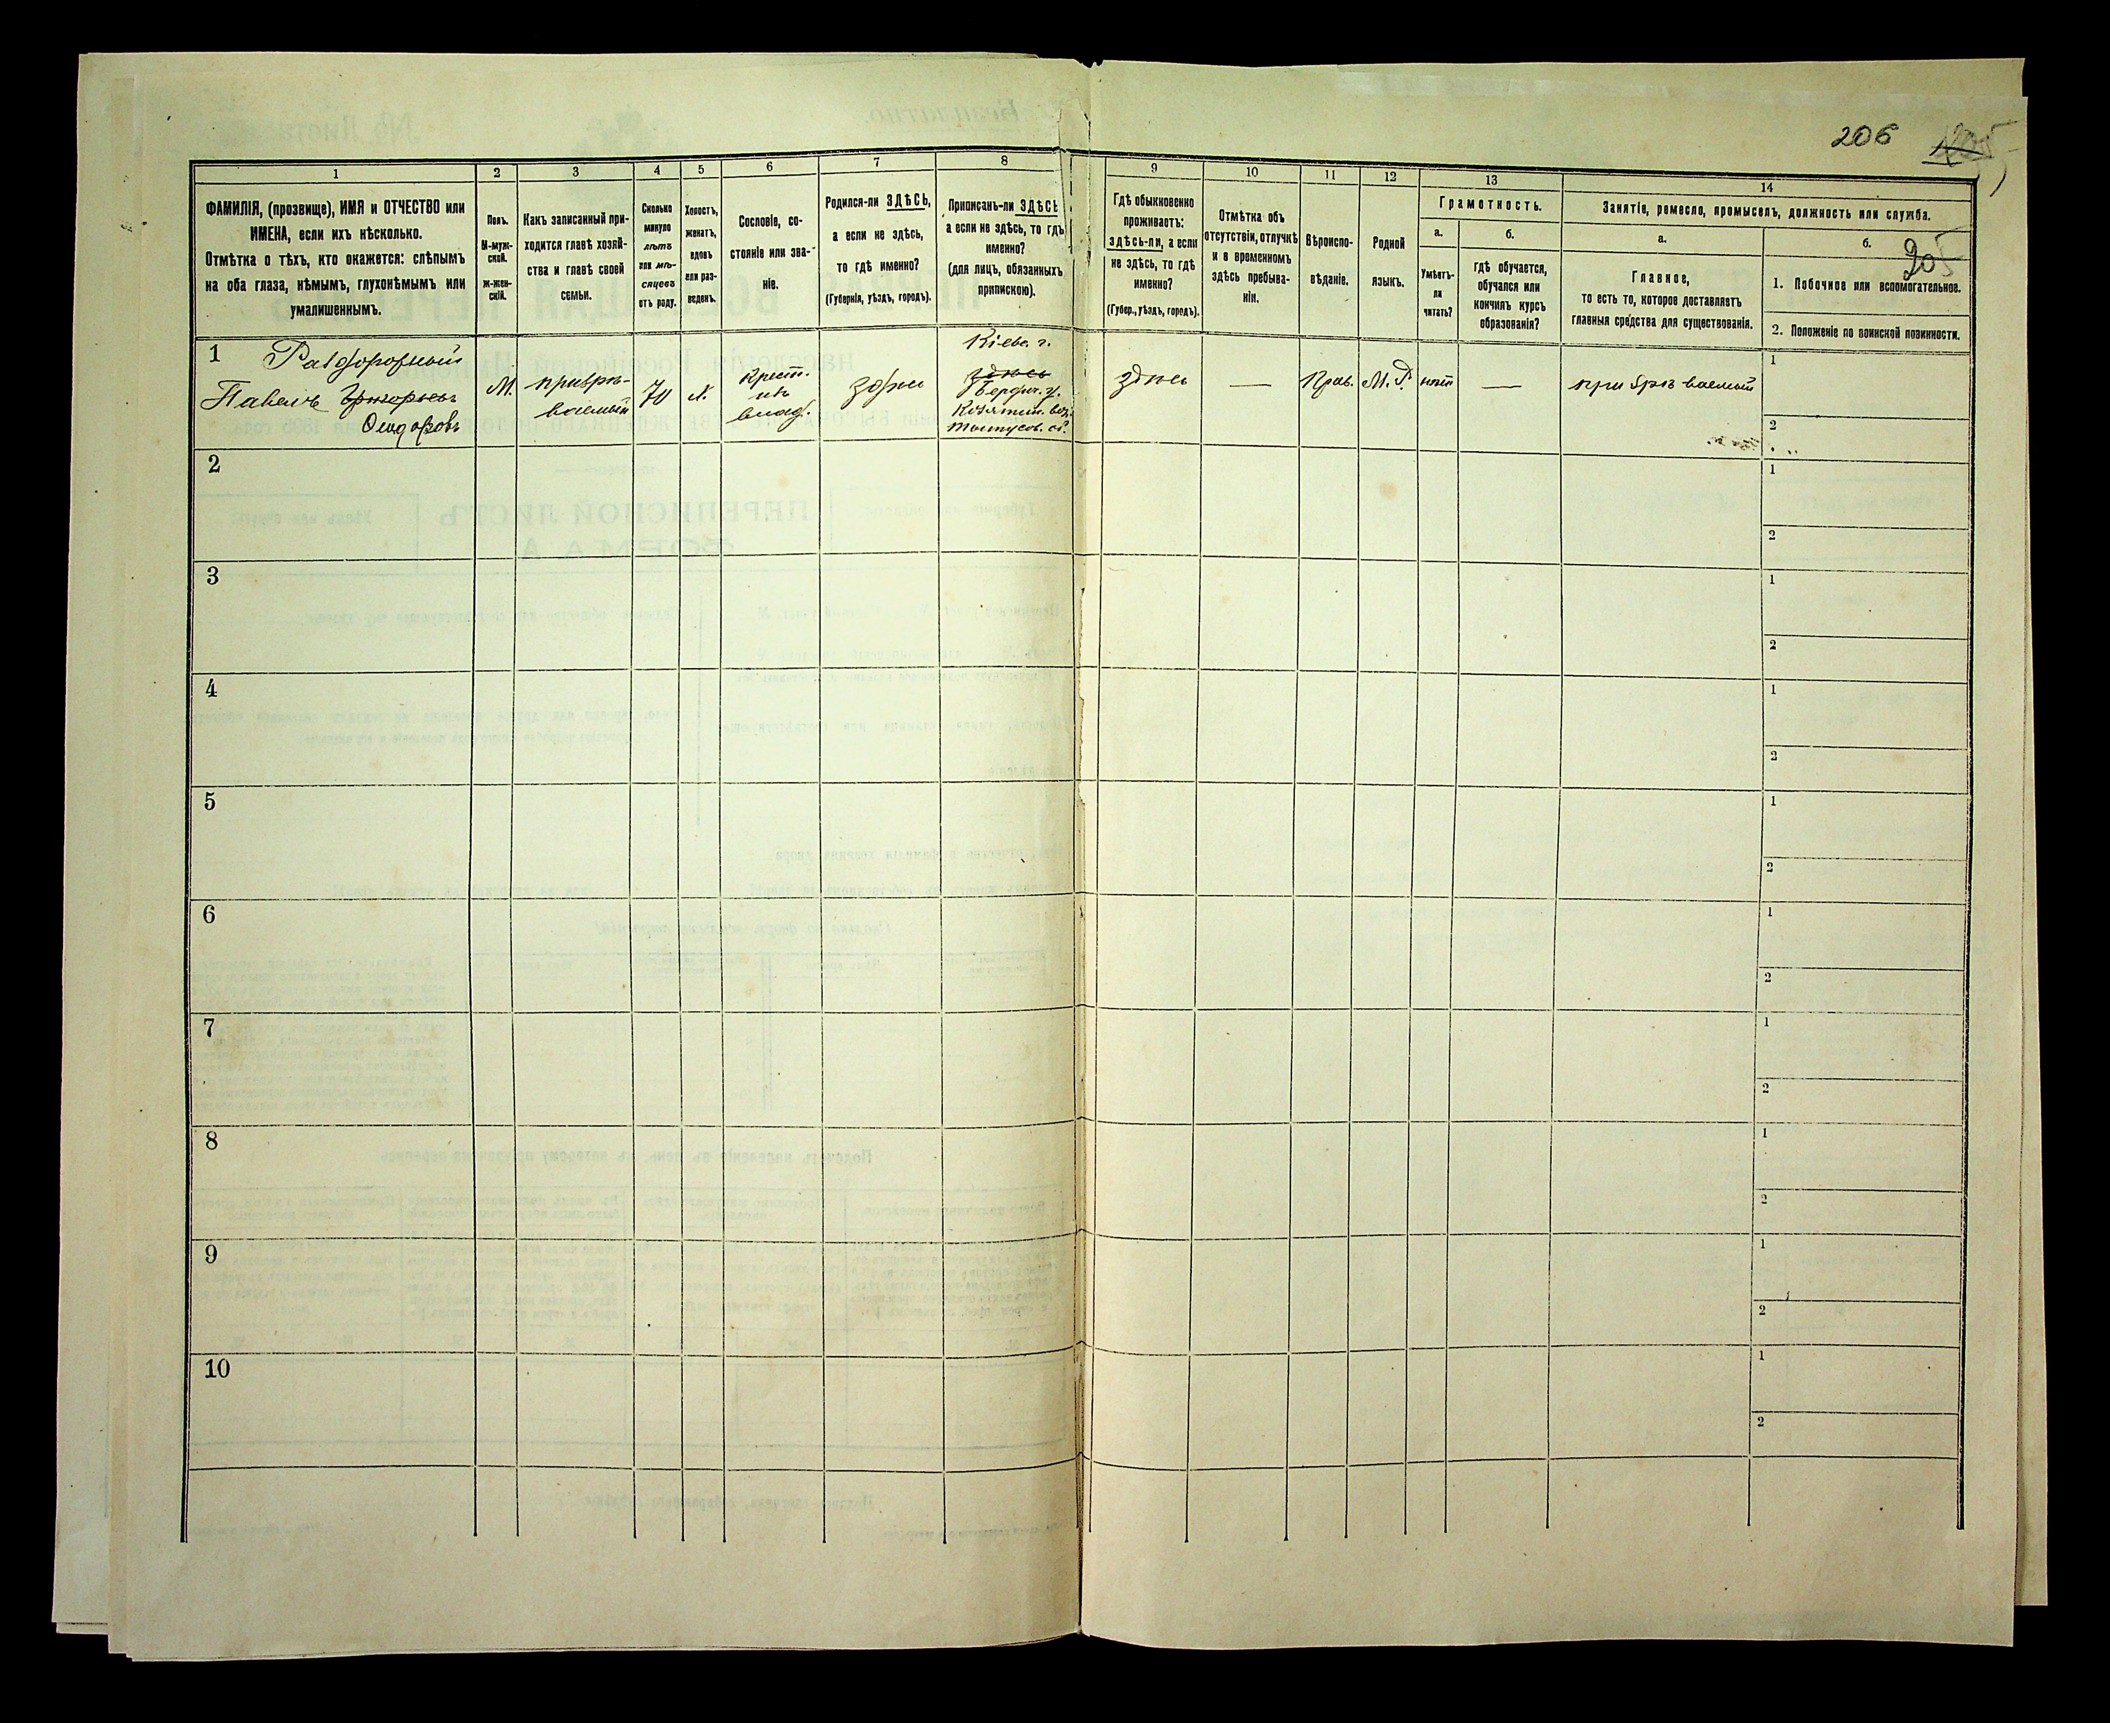 206
205
1 2 3 4 5 6 7 8 9 10 11 12 13 14
ФАМИЛІЯ, (прозвище), ИМЯ и ОТЧЕСТВО или
ИМЕНА, если ихъ нѣсколько.
Отмѣтка о тѣхъ, кто окажется: слѣпымъ
на оба глаза, нѣмымъ, глухонѣмымъ или
умалишеннымъ.
Полъ.
М-муж-
ской.
ж-жен-
скій.
Какъ записанный при-
ходится главѣ хозяй-
ства и главѣ своей
семьи.
Сколько
минуло
лѣтъ
или мѣ-
сяцевъ
отъ роду.
Холостъ,
женатъ,
вдовъ
или раз-
веденъ.
Сословіе, со-
стояніе или зва-
ніе.
Родился-ли ЗДѢСЬ,
а если не здѣсь,
то гдѣ именно?
(Губернія, уѣздъ, городъ).
Приписанъ-ли ЗДѢСЬ
а если не здѣсь, то гдѣ
именно?
(для лицъ, обязанныхъ
припискою).
Гдѣ обыкновенно
проживаетъ:
здѣсь-ли, а если
не здѣсь, то гдѣ
именно?
(Губер., уѣздъ, городъ).
Отмѣтка объ
отсутствіи, отлучкѣ
и о временномъ
здѣсь пребыва-
ніи.
Вѣроиспо-
вѣданіе.
Родной
языкъ.
Грамотность.
а.
Умѣетъ-
ли
читать?
б.
гдѣ обучается,
обучался или
кончилъ курсъ
образованія?
Занятіе, ремесло, промыселъ, должность или служба.
а.
Главное,
то есть то, которое доставляетъ
главныя средства для существованія.
б.
205
1. Побочное или вспомогательное.
2. Положеніе по воинской повинности.
1
Павелъ
М.
призрѣ-
ваемый
70
х.
крест.
изъ
влад.
здѣсь
Кіевс. г.
здѣсь
Бердич. у.
здѣсь
—
Прав.
М. Р.
нѣтъ
—
призрѣваемый
1
2
2
1
2
3
1
2
4
1
2
5
1
2
6
1
2
7
1
2
8
1
2
9
1
2
10
1
2